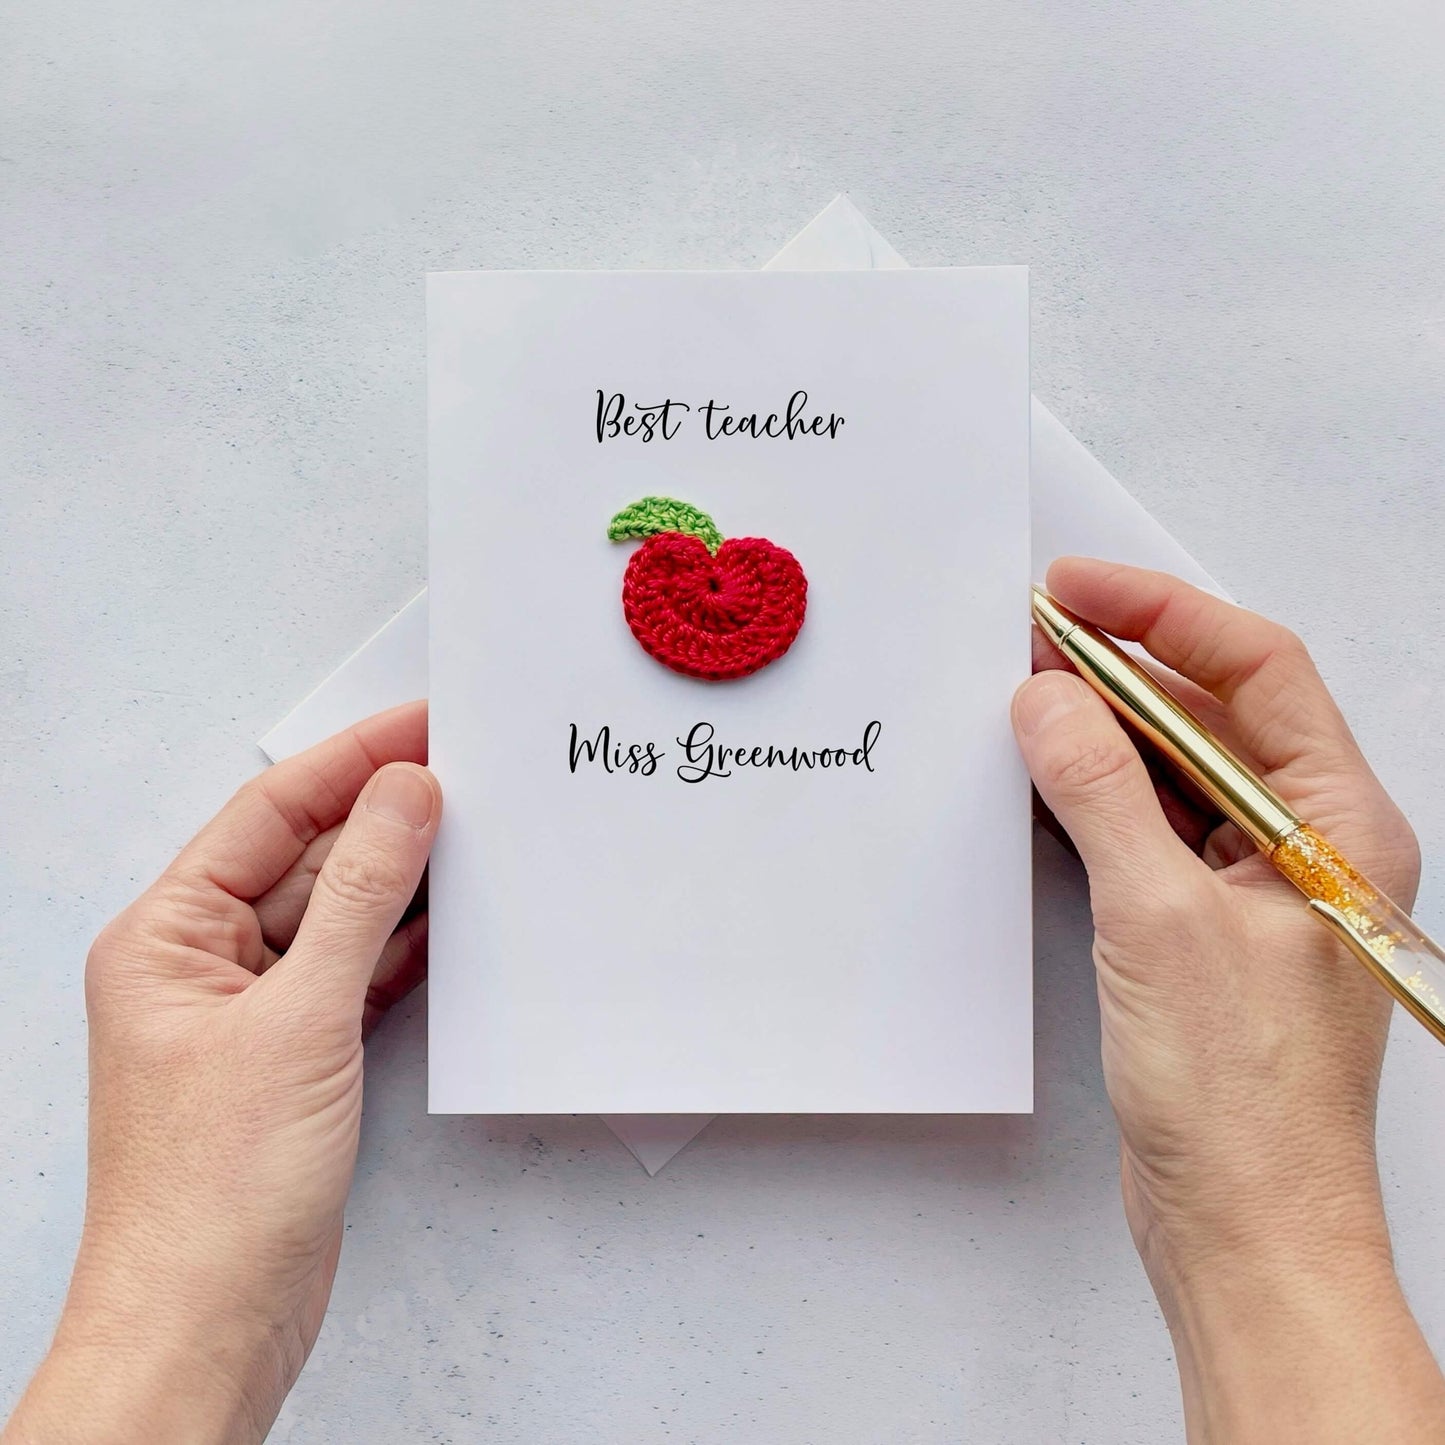 Best teacher
Miss Greenwood